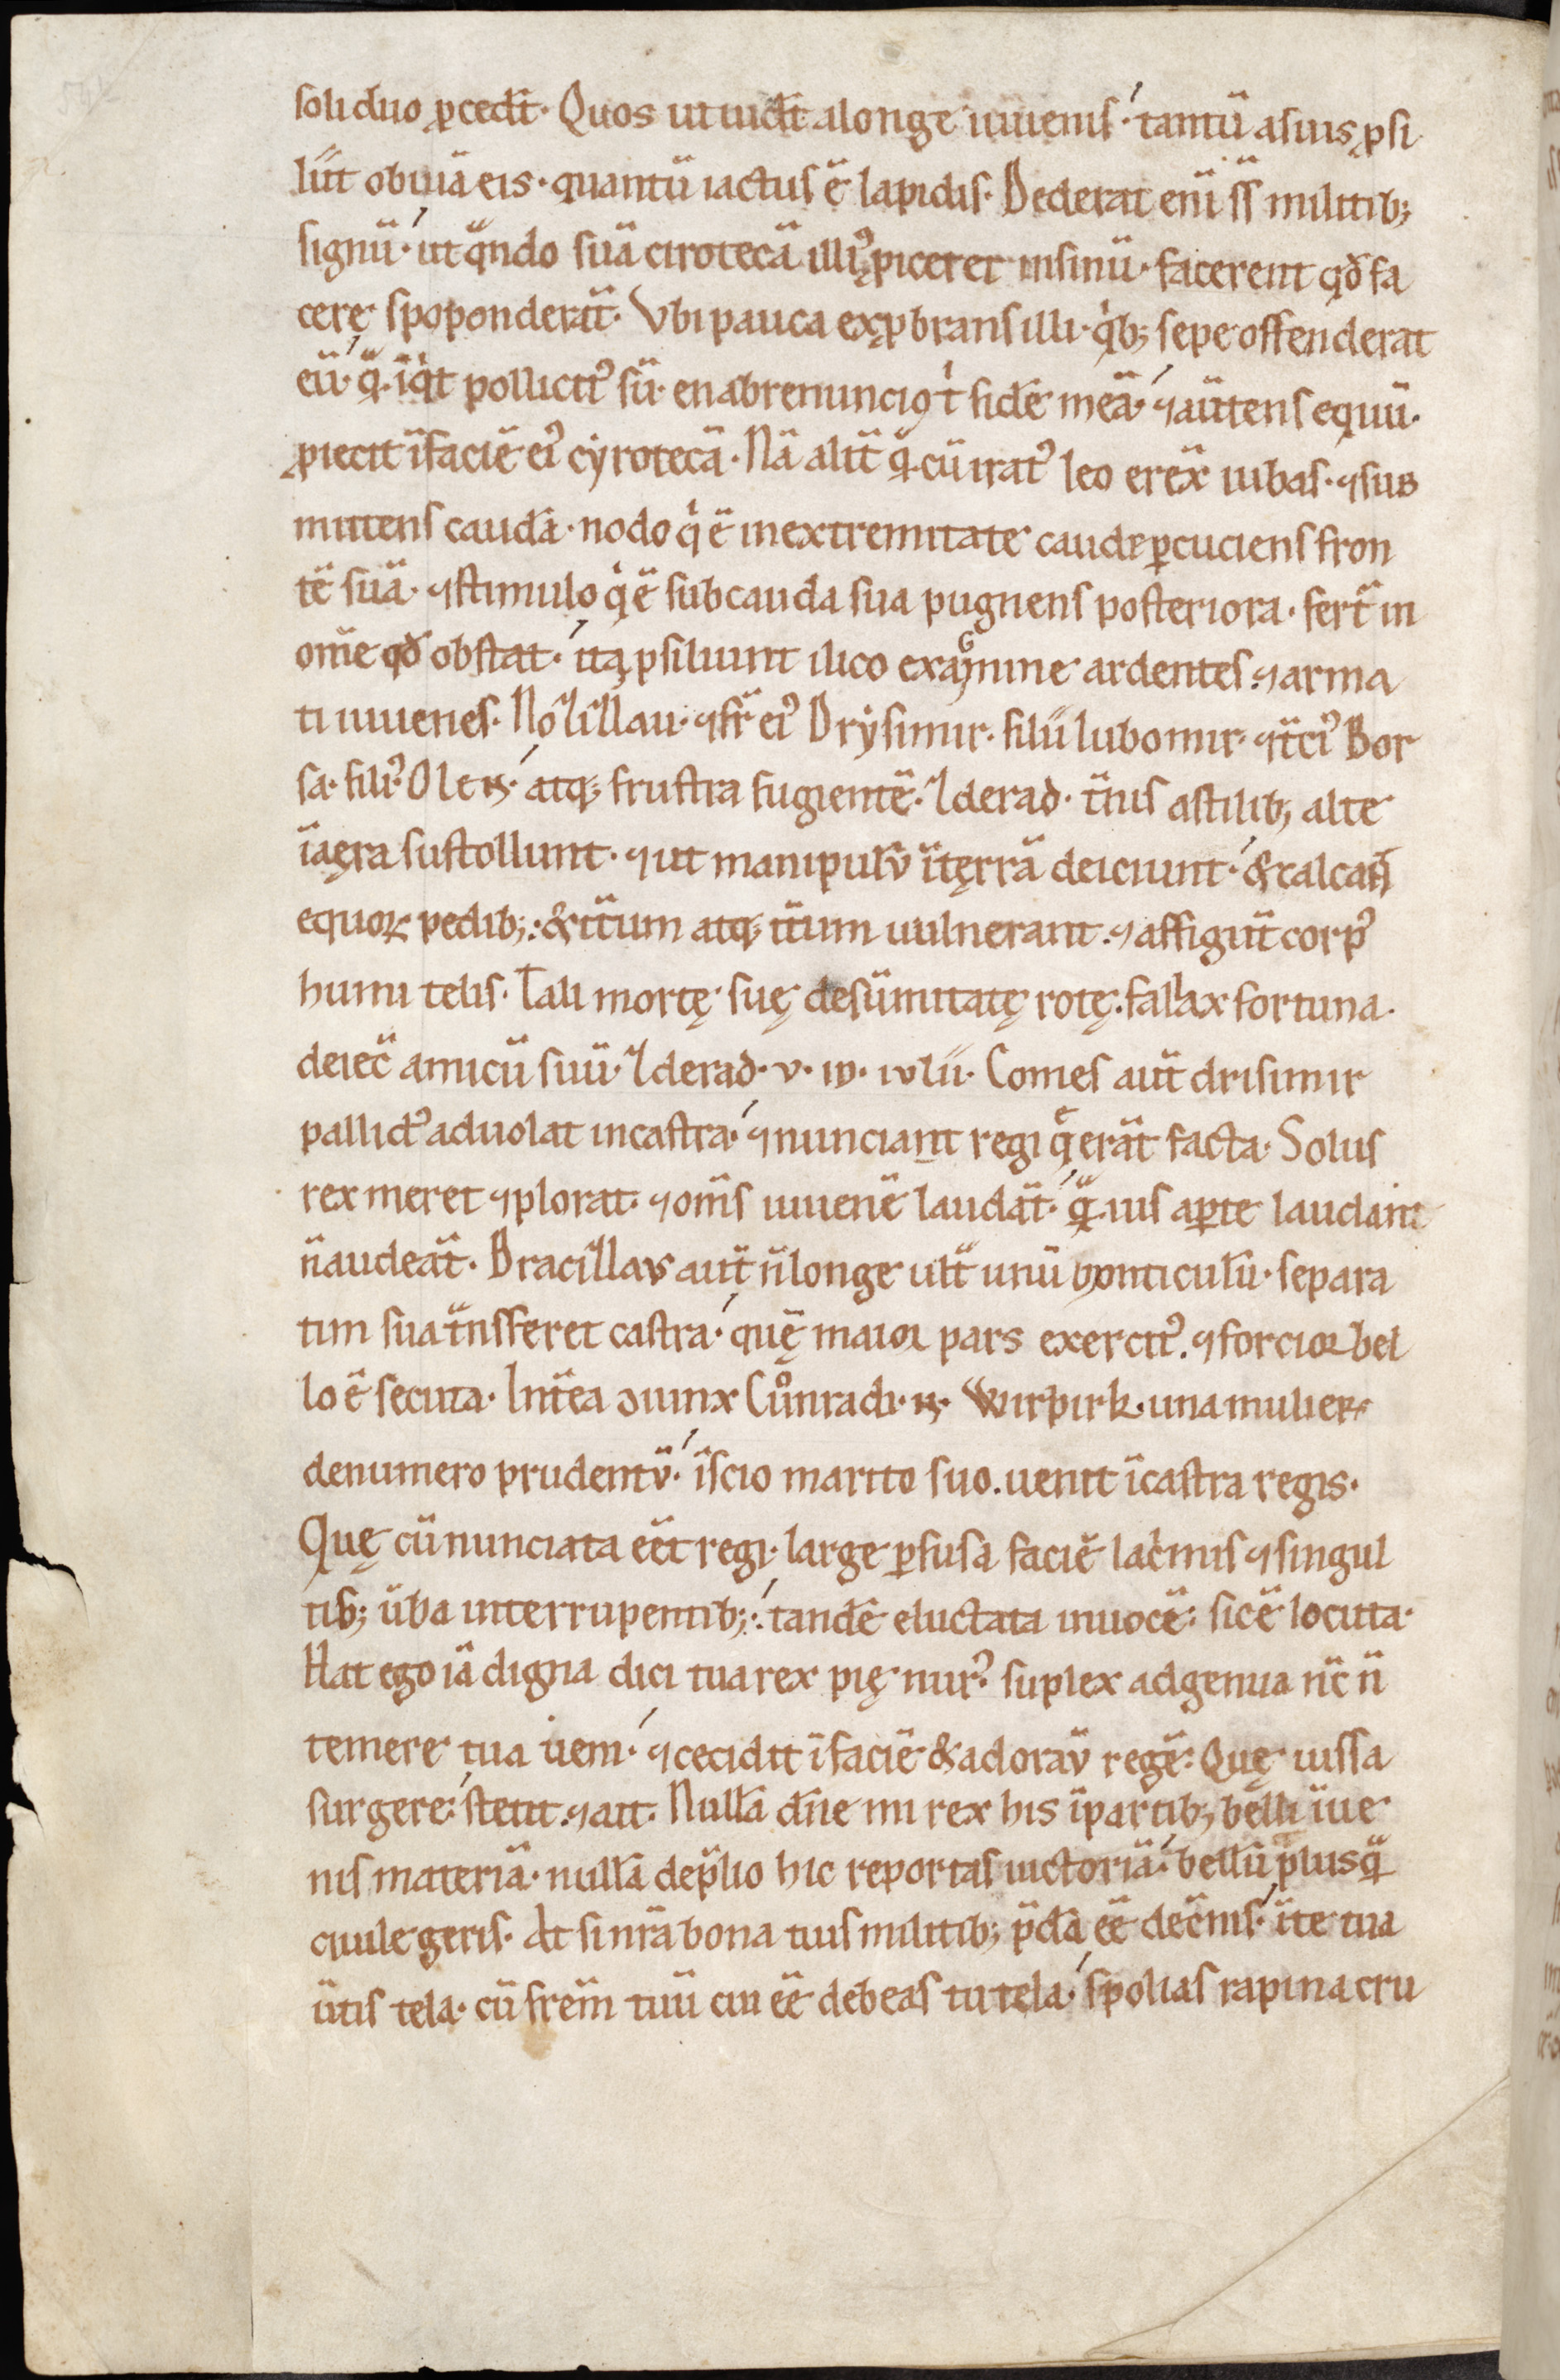 soli duo ꝓcedt̄. Quos ut uidit̄ alonge iuuenis. tantū asuis ꝓsi
lūt obuiā eis. quantū iactus ē lapidis. Dederat enī ss̄ militib;
signū. ut q̄ndo suā cirotecā illiꝰ ꝓiceret insinū. facerent qđ fa
cerę spoponderāt. Vbi pauca exꝓbrans illi. qⁱb; sepe offenderat
eū. q̄. inqⁱt pollicitꝰ sū. en abrenuncio tⁱ fidē meā. ⁊ aūtens equū.
ꝓiecit īfaciē eiꝰ cẏrotecā. Nā alit̄ q̄ cū iratꝰ leo erex̄ iubas. ⁊ sub
mittens caudā. nodo qⁱ ē inextremitate caude ꝑcuciens fron
tē suā. ⁊ stimulo qⁱ ē subcauda sua pugnens posteriora. fert̄ in
om̄e qđ obstat. ita ꝓsiliunt ilico exagmine ardentes. ⁊ arma
ti iuuenes. Noı̓ıſlau. ⁊ fr̄ eiꝰ Drẏsimir. filii lubomir. ⁊ t̄ciꝰ Bor
sa. filiꝰ Olen. atq; frustra fugientē. Iderad. t̄nis astilib; alte
īaęra sustollunt. ⁊ ut manipulū ītęrrā deiciunt. & calcan̄t
equoꝝ pedib;. & itūm atq; itūm uulnerant. ⁊ affigūt corpꝰ
humi telis. Tali mortę suę desūmitatę rotę. fallax fortuna.
deiec̄ amicū suū. Iderad. v. ıꝺ. iulii. Comes aūt drisimir
pallidꝰ aduolat incastra. ⁊ nunciant regi qᵉ erāt facta. Solus
rex meret ⁊ plorat. ⁊ om̄s iuuenē laudāt. q̄ uis aꝑte laudant
n̄ audeāt. Bracillav aūt n̄ longe ult̄ unū monticulū. separa
tim sua t̄nsferet castra. quę maior pars exercitꝰ. ⁊ forcior bel
lo ē secuta. Int̄ea ɔiunx Cůnradi. n. Wirpirk. una mulier
denumero prudentū. īscio marito suo. uenit īcastra regis.
Quę cū nunciata eēt regi. large ꝑfusa faciē lacⁱmis ⁊ singul
tib; ūba interrupentib;. tandē eluctata inuocē. sic ē locuta.
Hat ego iā digna dici tua rex pię nurꝰ. suplex adgenua nc̄ n̄
temere tua uēni. ⁊ cecidit īfaciē & adorav̄ regē. Quę iussa
surgere. stetit. ⁊ ait. Nullā dn̄e mi rex his īpartib; belli īue
nis materiā. nullā dep̄lio hic reportas uictoriā. bellū plusq̄
ciuile geris. At si nr̄a bona tuis militib; p̄dā eē dec̄nis. īte tua
ūtis tela. cū frēm tuū cui eē debeas tutela. spolias rapina cru